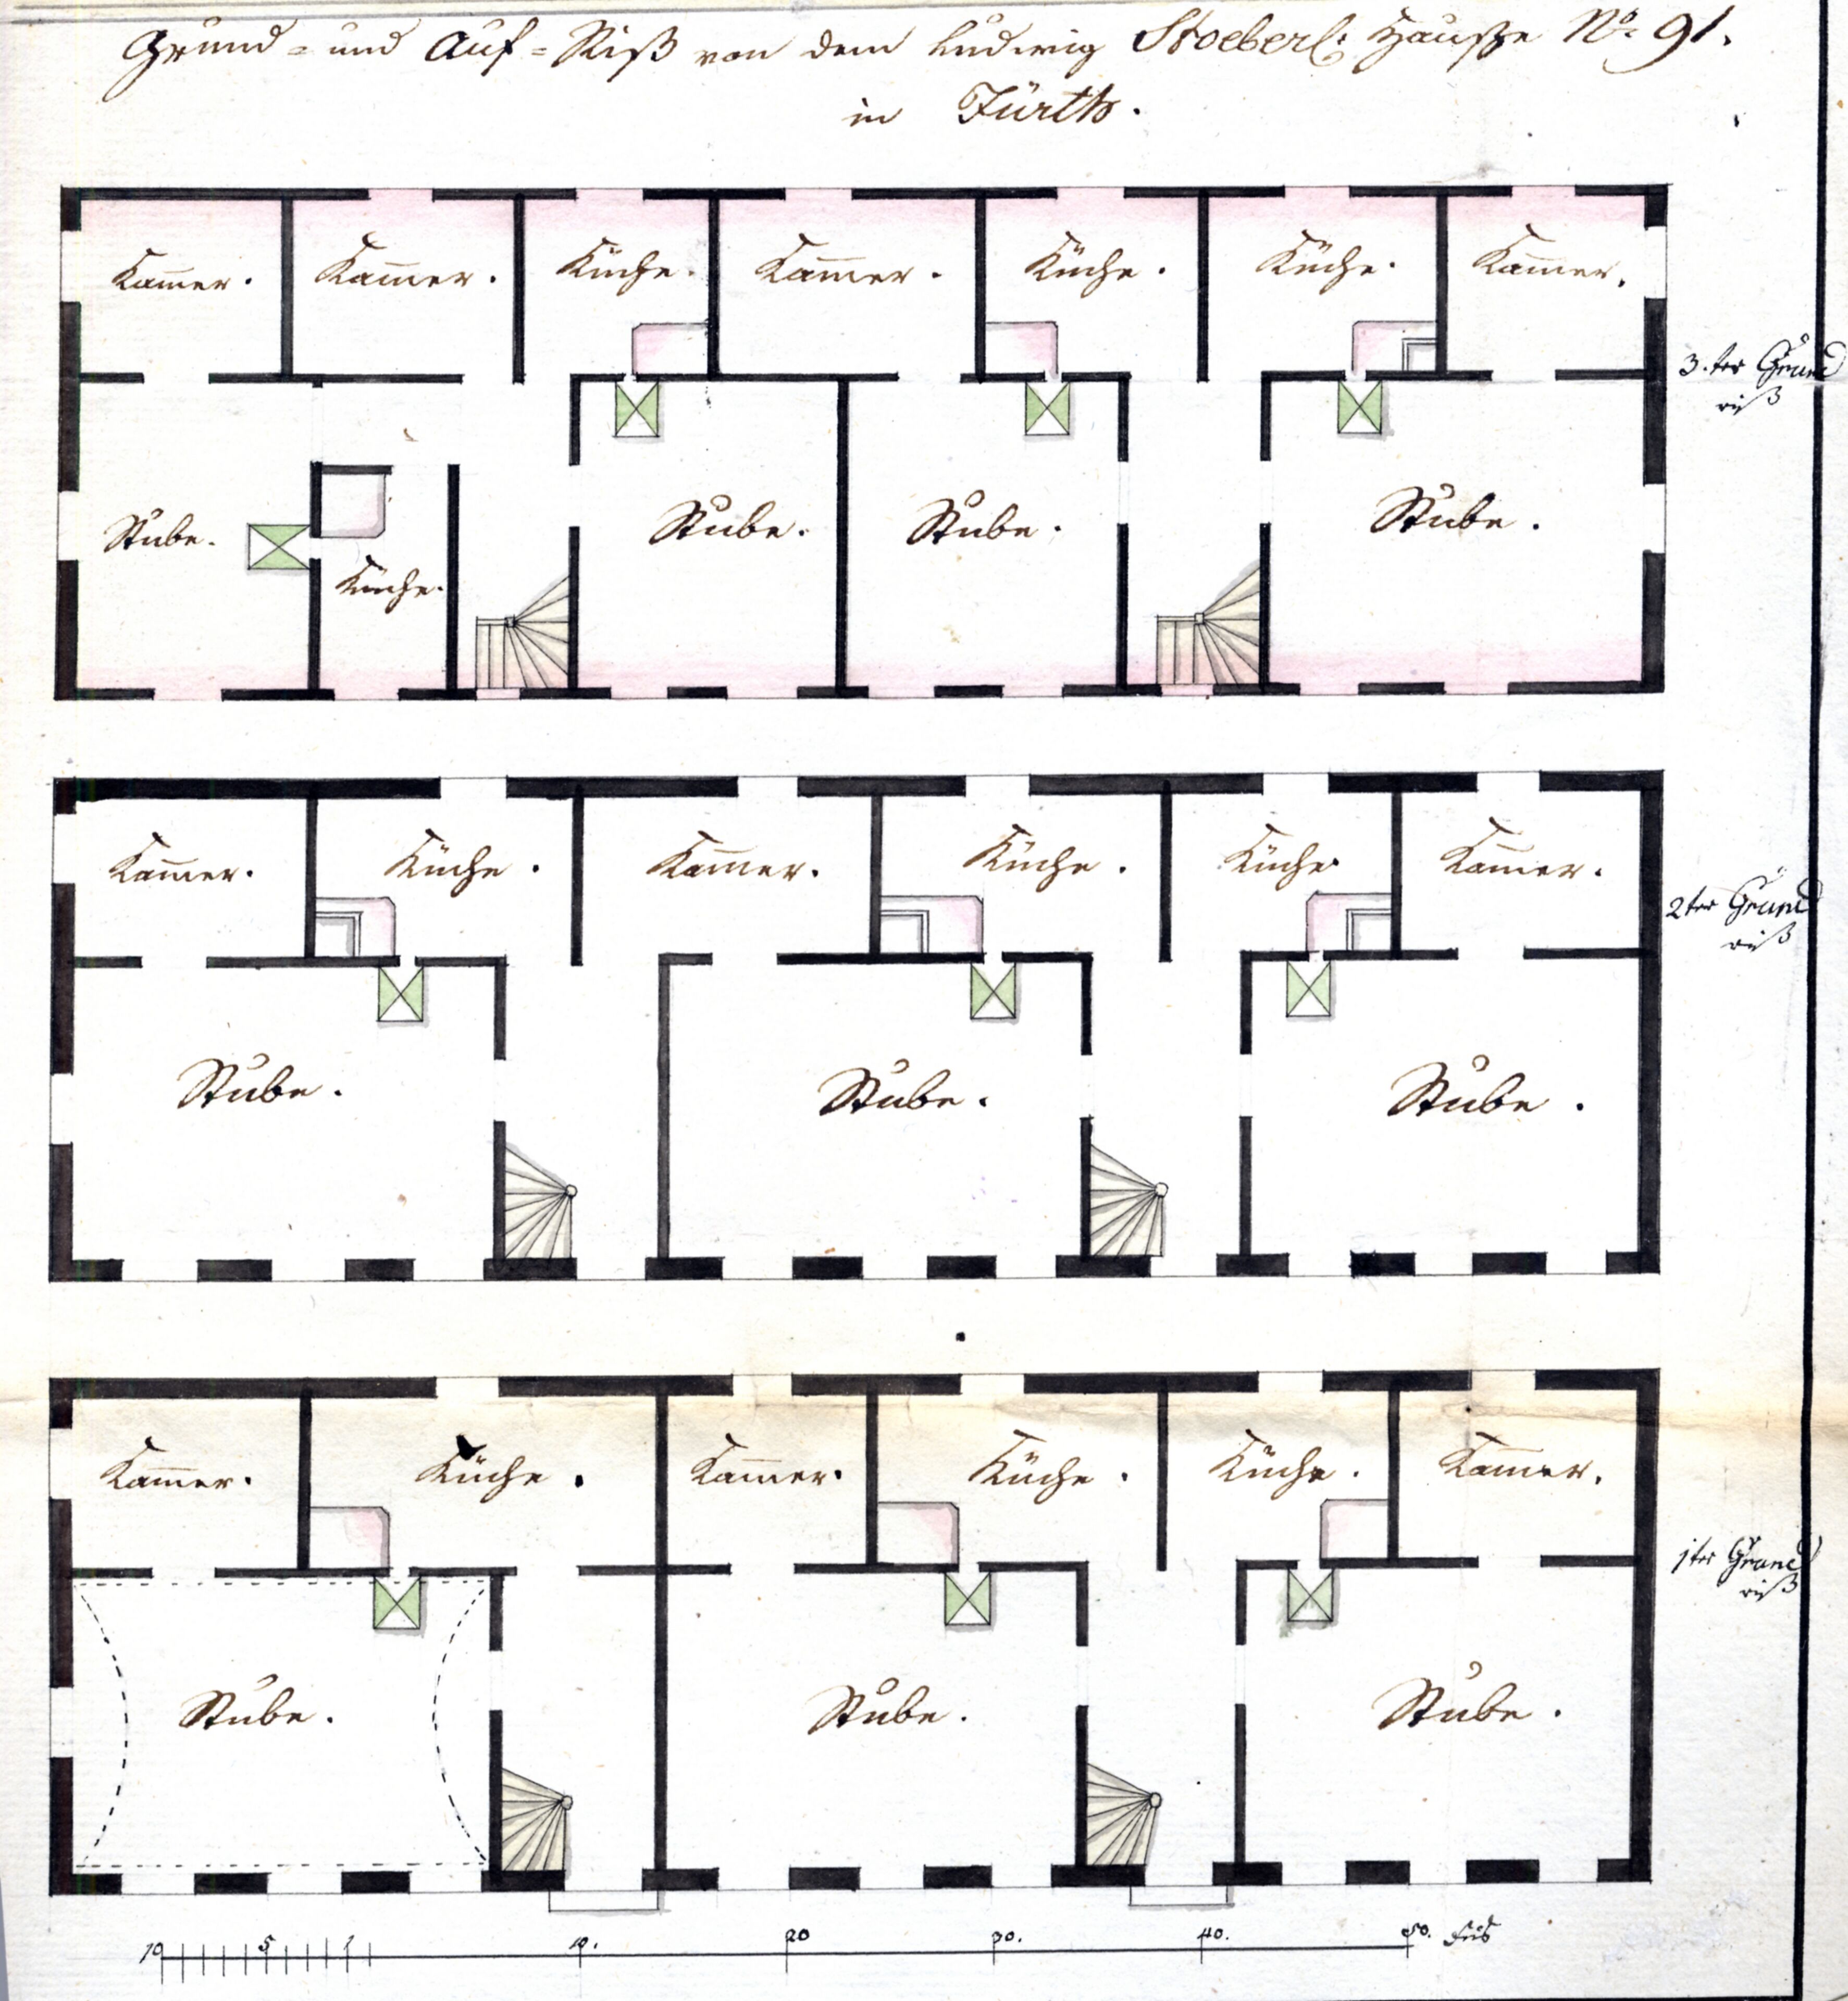 Grund = und Auf = Riß von dem Ludwig Stoeberl: Hauße No. 91.
in Fürth.
Kam̅er. Kam̅er. Küche. Kam̅er. Küche. Küche. Kam̅er.
3.ter Grund
riß
Stube. Stube. Stube. Stube.
Küche.
Kam̅er. Küche. Kam̅er. Küche. Küche Kam̅er.
2ter Grund
riß
Stube. Stube. Stube.
Kam̅er. Küche. Kam̅er. Küche. Küche. Kam̅er.
1ter Grund
riß
Stube. Stube. Stube.
10 5 1 10. 20 30. 40. 50. Fus